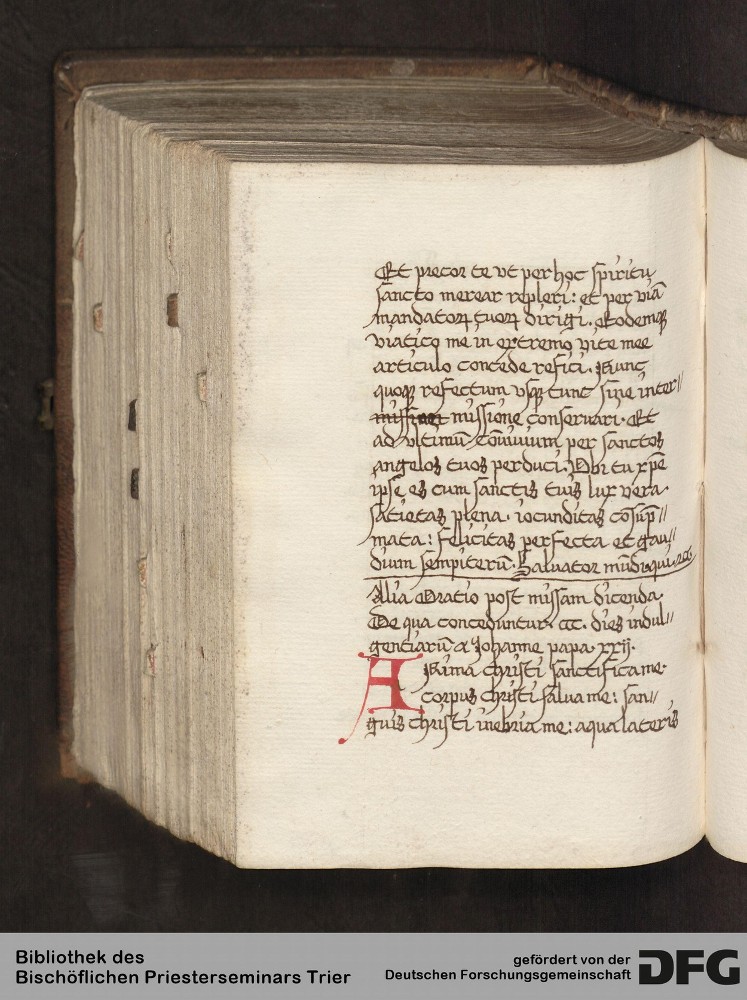 Et precor te vt per hoc spiritu
sancto merear repleri: et per viā
mandatoꝝ tuoꝝ dirigi. Eodemqꝫ
viatico me in extremo vite mee
articulo concede refici. Nunc
quoqꝫ refectum vsqꝫ tunc sine inter//
missione conseruari. Et
ad vltimū cōuiuium per sanctos
angelos tuos perduci. Vbi tu xpē
ipse es cum sanctis tuis lux vera.
satietas plena. iocunditas cōsum//
mata: felicitas perfecta et gau//
dium sempiterū. Saluator mūdi. qui. ꝛc̄.
Alia Oratio post missam dicenda.
De qua conceduntur. CC. dies indul//
gentiarū a Johanne papa. xxij.
ANima christi sanctifica me.
corpus christi salua me: san//
guis christi inebria me: aqua lateris
Bibliothek des
Bischöflichen Priesterseminars Trier
gefördert von der
Deutschen Forschungsgemeinschaft
DFG